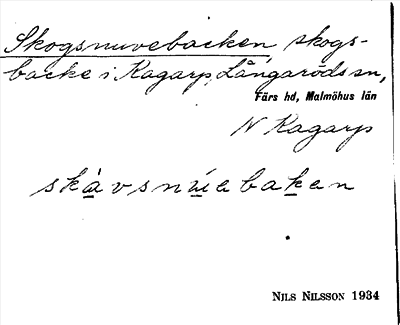 Skogsnuvebacken, skogs-
backe i Kagarp, Långaröds sn,
Färs hd, Malmöhus län
N Kagarp
skávsnúebaken
Nils Nilsson 1934